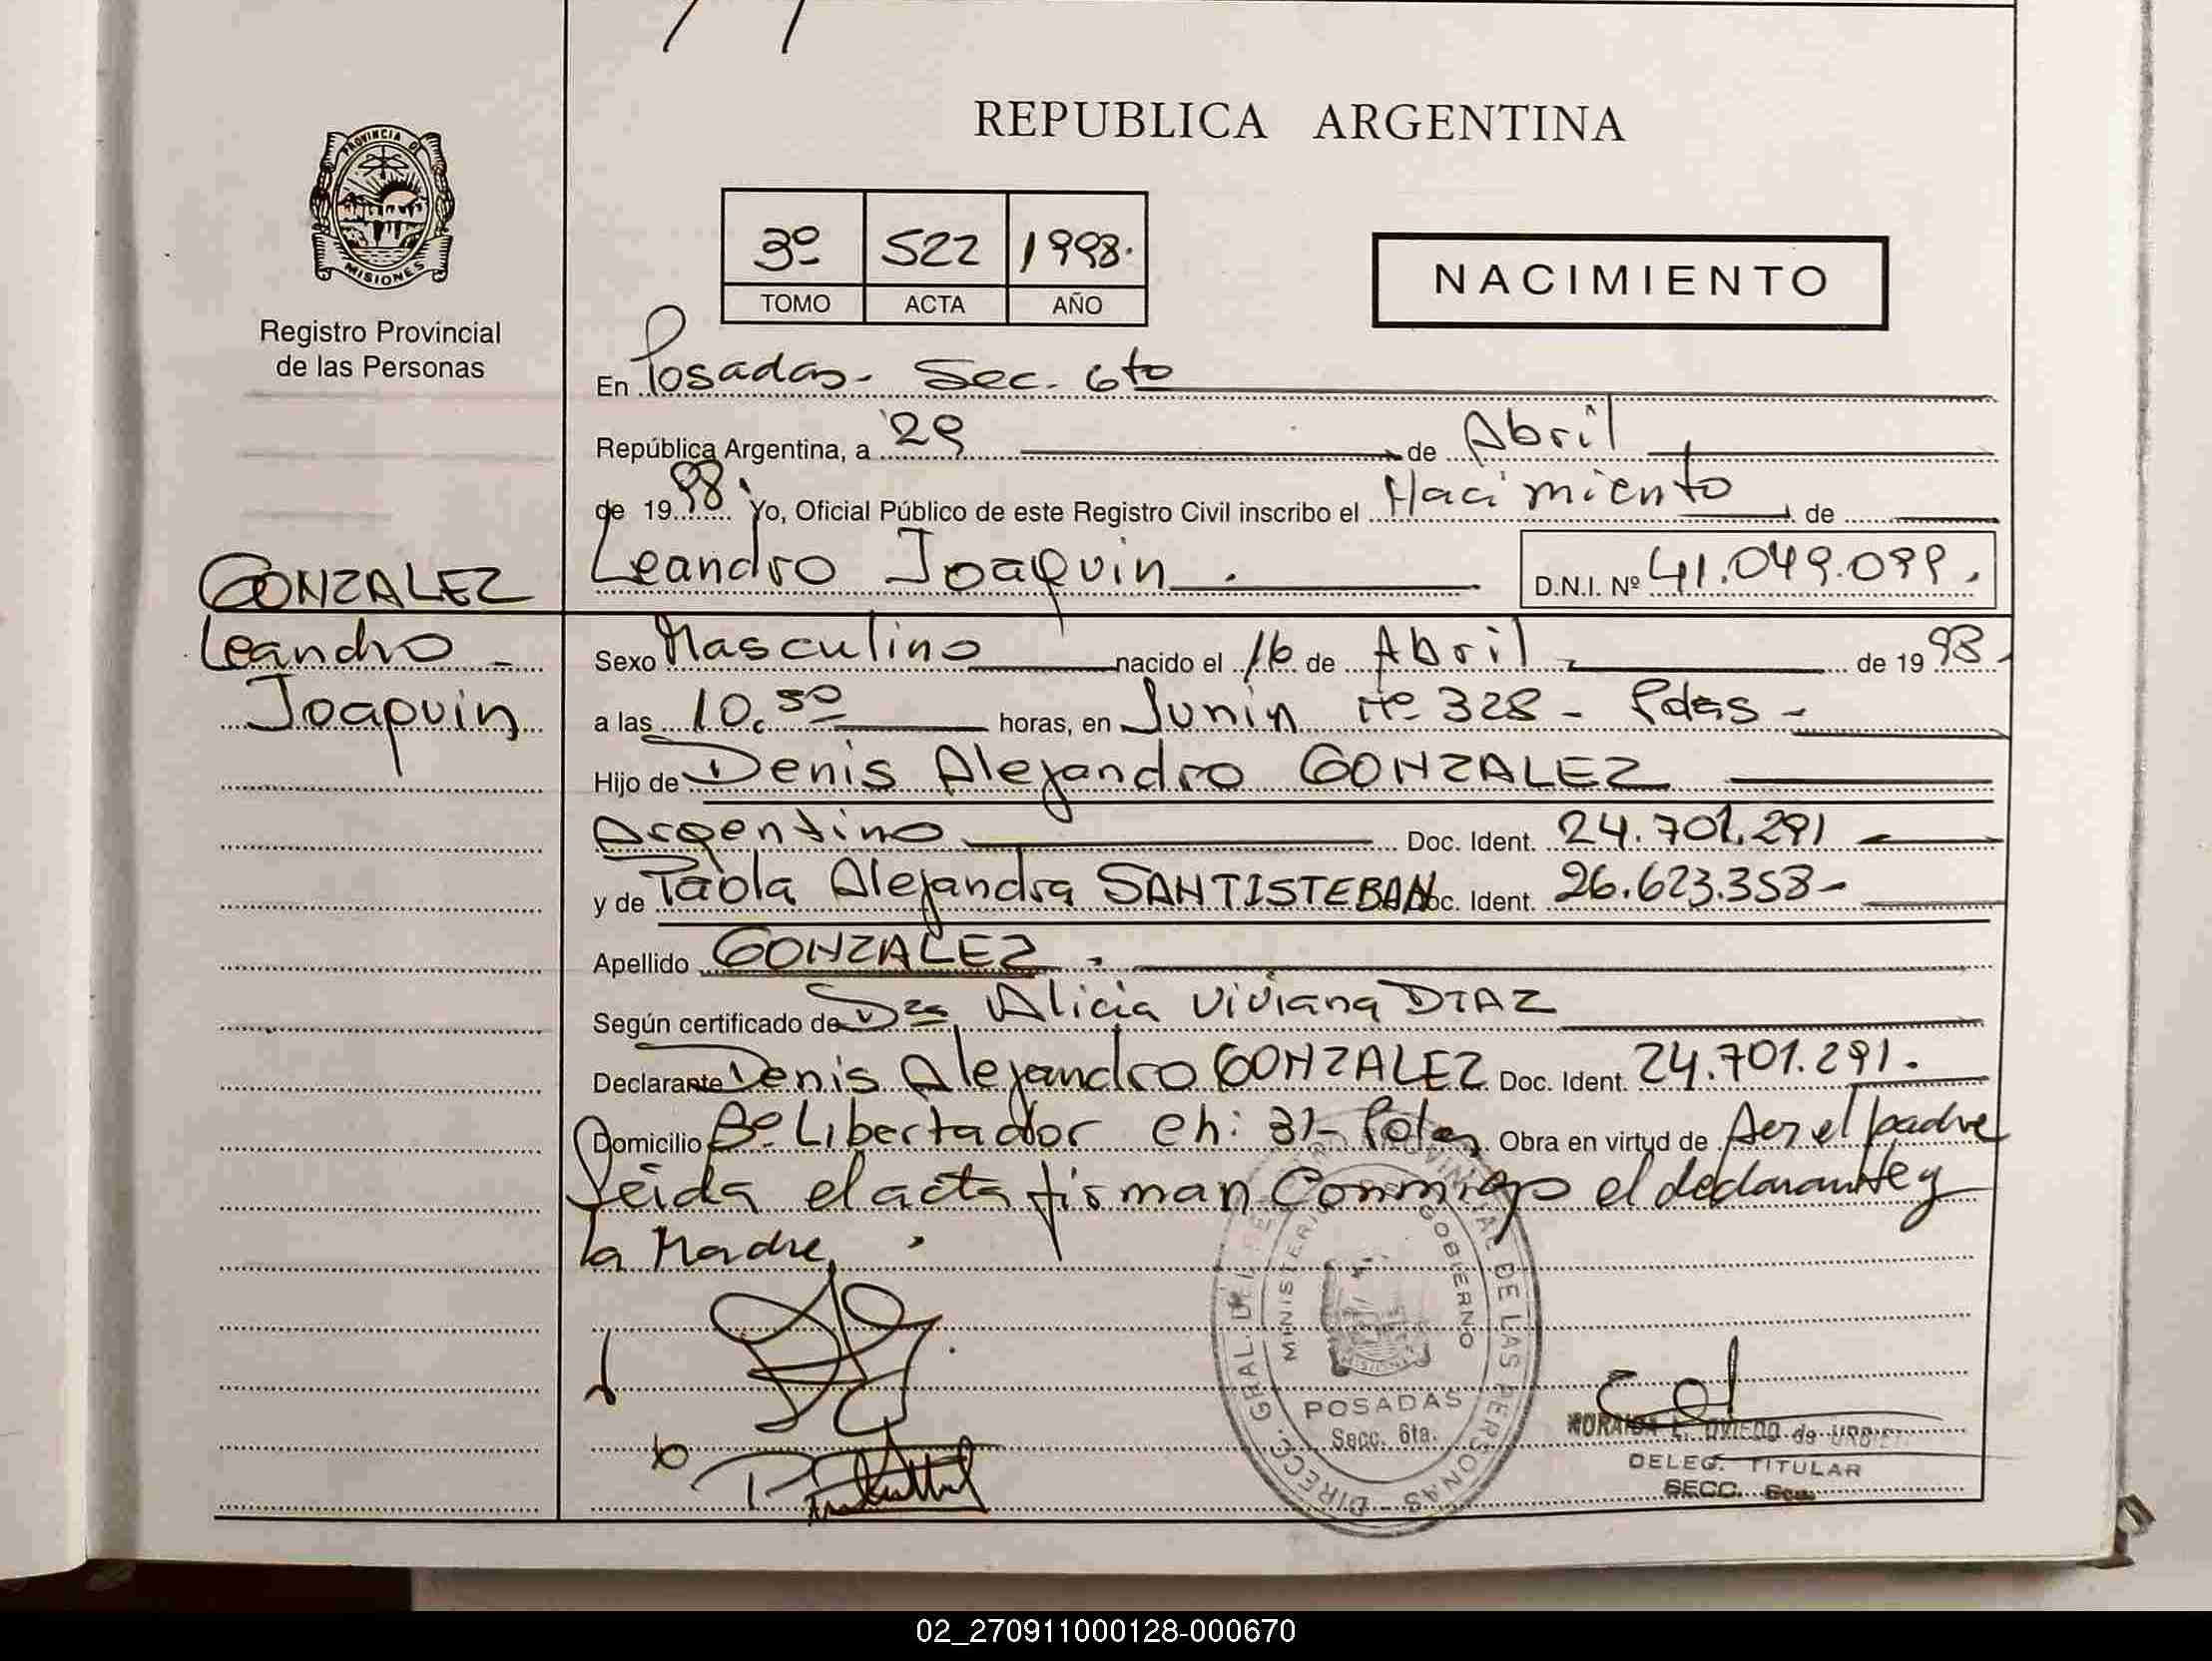 REPUBLICA ARGENTINA
PROVINCIA DE
MISIONES
Registro Provincial
de las Personas
3º 522 1998.
TOMO ACTA AÑO
NACIMIENTO
En Posadas - Sec. 6to
República Argentina, a 29 de Abril
de 1998. Yo, Oficial Público de este Registro Civil inscribo el Nacimiento de
Leandro Joaquin. D.N.I. Nº 41.049.099.
GONZALEZ
Leandro -
Joaquin
Sexo Masculino nacido el 16 de Abril de 1998.
a las 10.50 horas, en Junin Nº 328 - Pdas -
Hijo de Denis Alejandro GONZALEZ
Argentino Doc. Ident. 24.701.291
y de Paola Alejandra SANTISTEBAN Doc. Ident. 26.623.358 -
Apellido GONZALEZ.
Según certificado de Dra Alicia Viviana DIAZ
Declarante Denis Alejandro GONZALEZ Doc. Ident. 24.701.291.
Domicilio Bº Libertador Ch: 31 - Obra en virtud de ser el padre
Leida el acta firman Conmigo el declarante y
la Madre.
DIRECC. GRAL. DEL REG. PROVINCIAL DE LAS PERSONAS
MINISTERIO GOBIERNO
MISIONES
POSADAS
Secc. 6ta.
L. OVIEDO de
DELEG. TITULAR
SECC. 6ta.
02_270911000128-000670